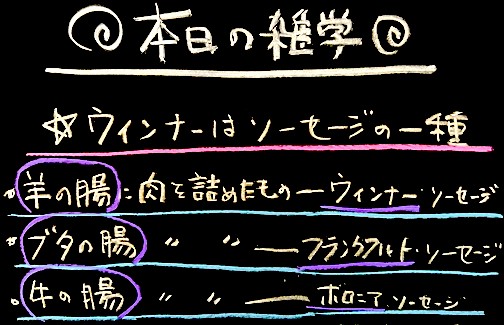 本日の雑学
☆ウィンナーはソーセージの一種
羊の腸に肉を詰めたもの ー ウィンナーソーセージ
ブタの腸 〃 〃 ー フランクフルト・ソーセージ
牛の腸 〃 〃 ー ボロニア・ソーセージ